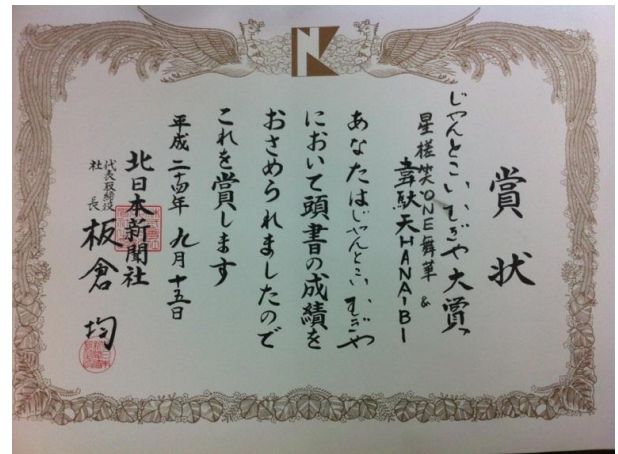 賞状
じゃんとこいむぎや大賞
星槎笑ONE舞華 &
韋駄天HANA-BI
あなたはじゃんとこいむぎや
において頭書の成績を
おさめられましたので
これを賞します
平成二十四年九月十五日
北日本新聞社
代表取締役
社長
板倉均